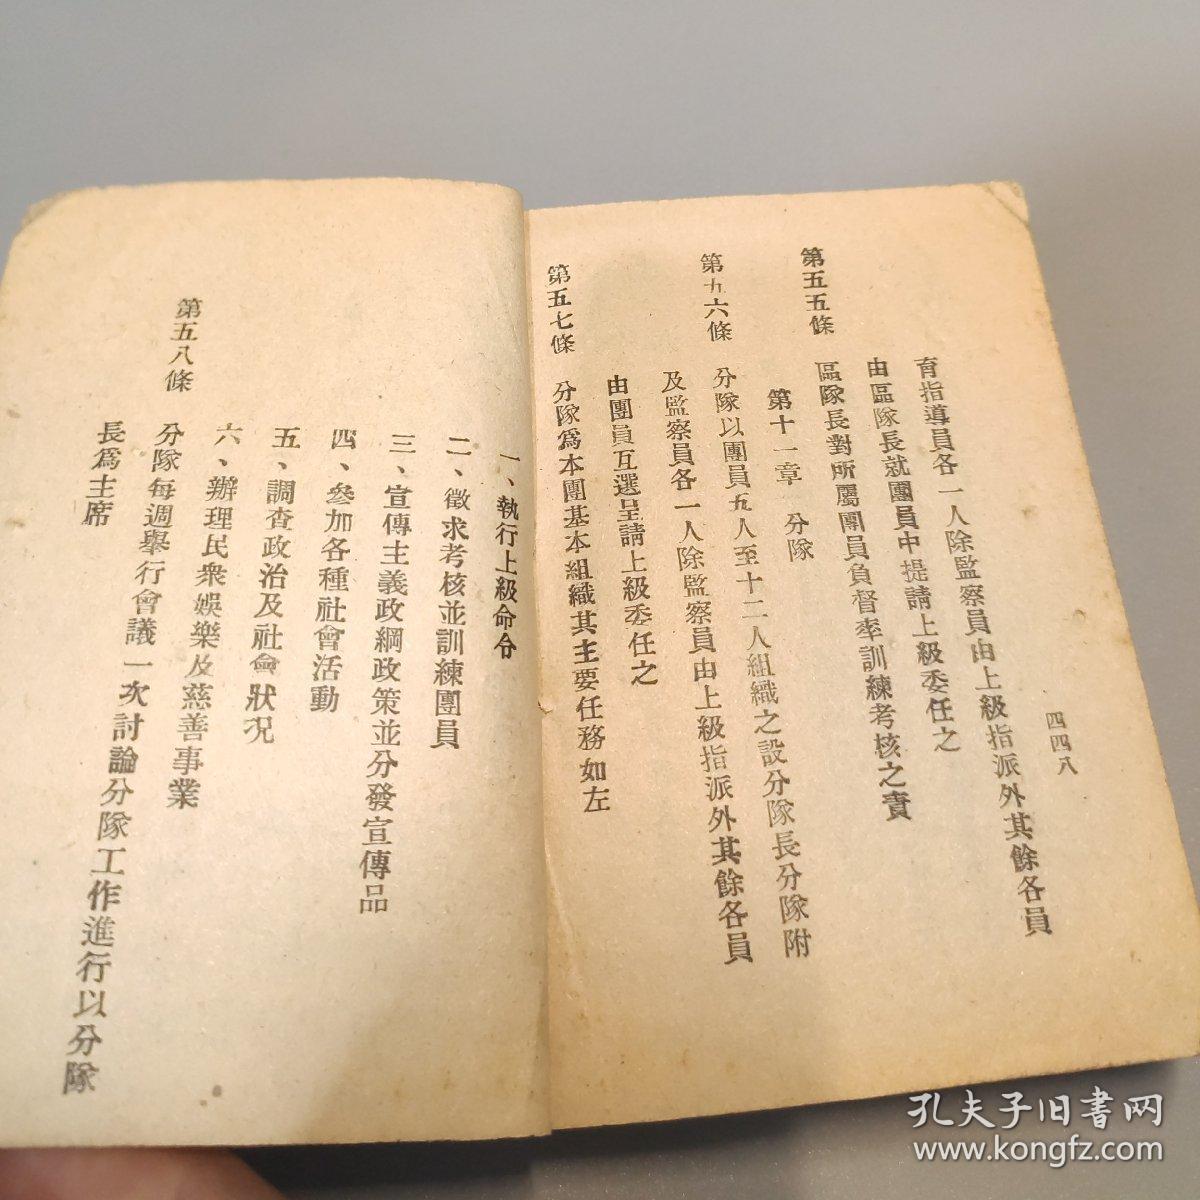 四四八
育指導員各一人除監察員由上級指派外其餘各員
由區隊長就團員中提請上級委任之
第五五條
區隊長對所屬團員負督率訓練考核之責
第十一章 分隊
第五六條 分隊以團員五人至十二人組織之設分隊長分隊附
及監察員各一人除監察員由上級指派外其餘各員
由團員互選呈請上級委任之
第五七條 分隊爲本團基本組織其主要任務如左
一、執行上級命令
二、徵求考核並訓練團員
三、宣傳主義政綱政策並分發宣傳品
四、參加各種社會活動
五、調查政治及社會狀况
六、辦理民衆娛樂及慈善事業
第五八條 分隊每週舉行會議一次討論分隊工作進行以分隊
長爲主席
孔夫子旧书网
www.kongfz.com